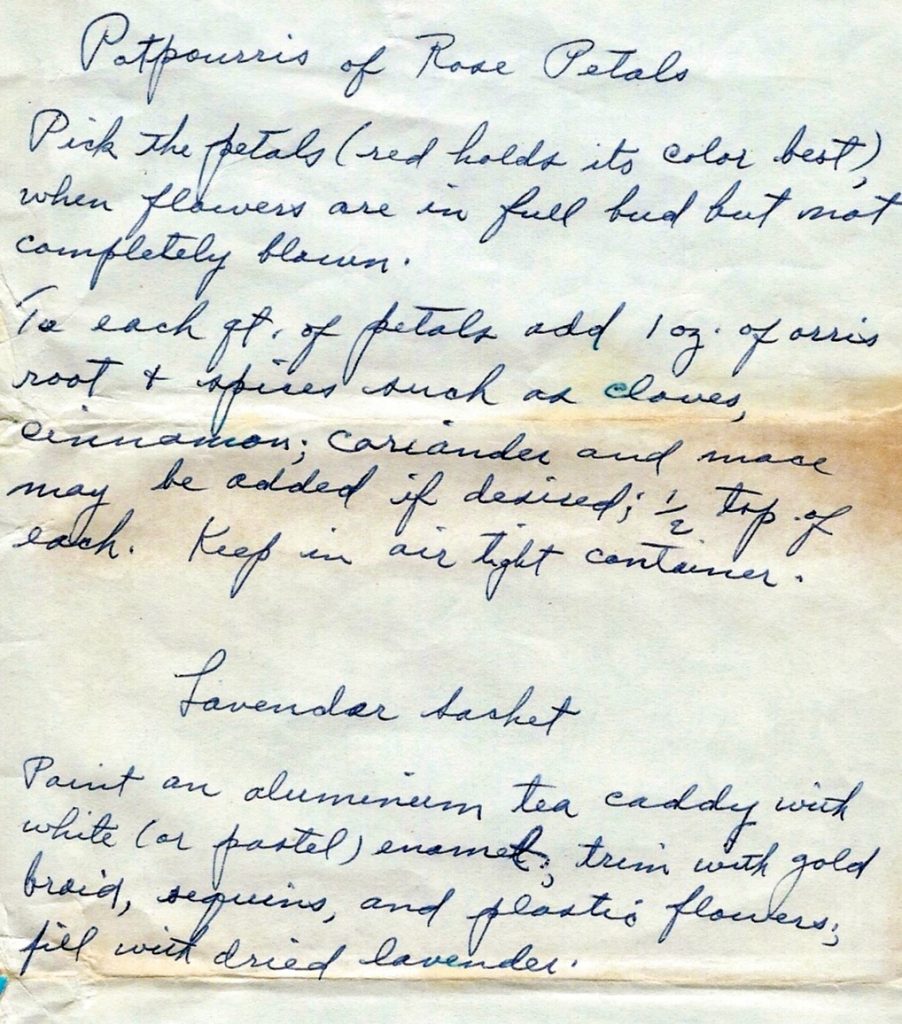 Potpourris of Rose Petals
Pick the petals (red holds its color best),
when flowers are in full bud but not
completely blown.
To each qt. of petals add 1 oz. of orris
root + spices such as cloves,
cinnamon; coriander and mace
may be added if desired; 1/2 tsp. of
each. Keep in air tight container.
Lavendar sachet
Paint an aluminum tea caddy with
white (or pastel) enamel; trim with gold
braid, sequins, and plastic flowers;
fill with dried lavender.